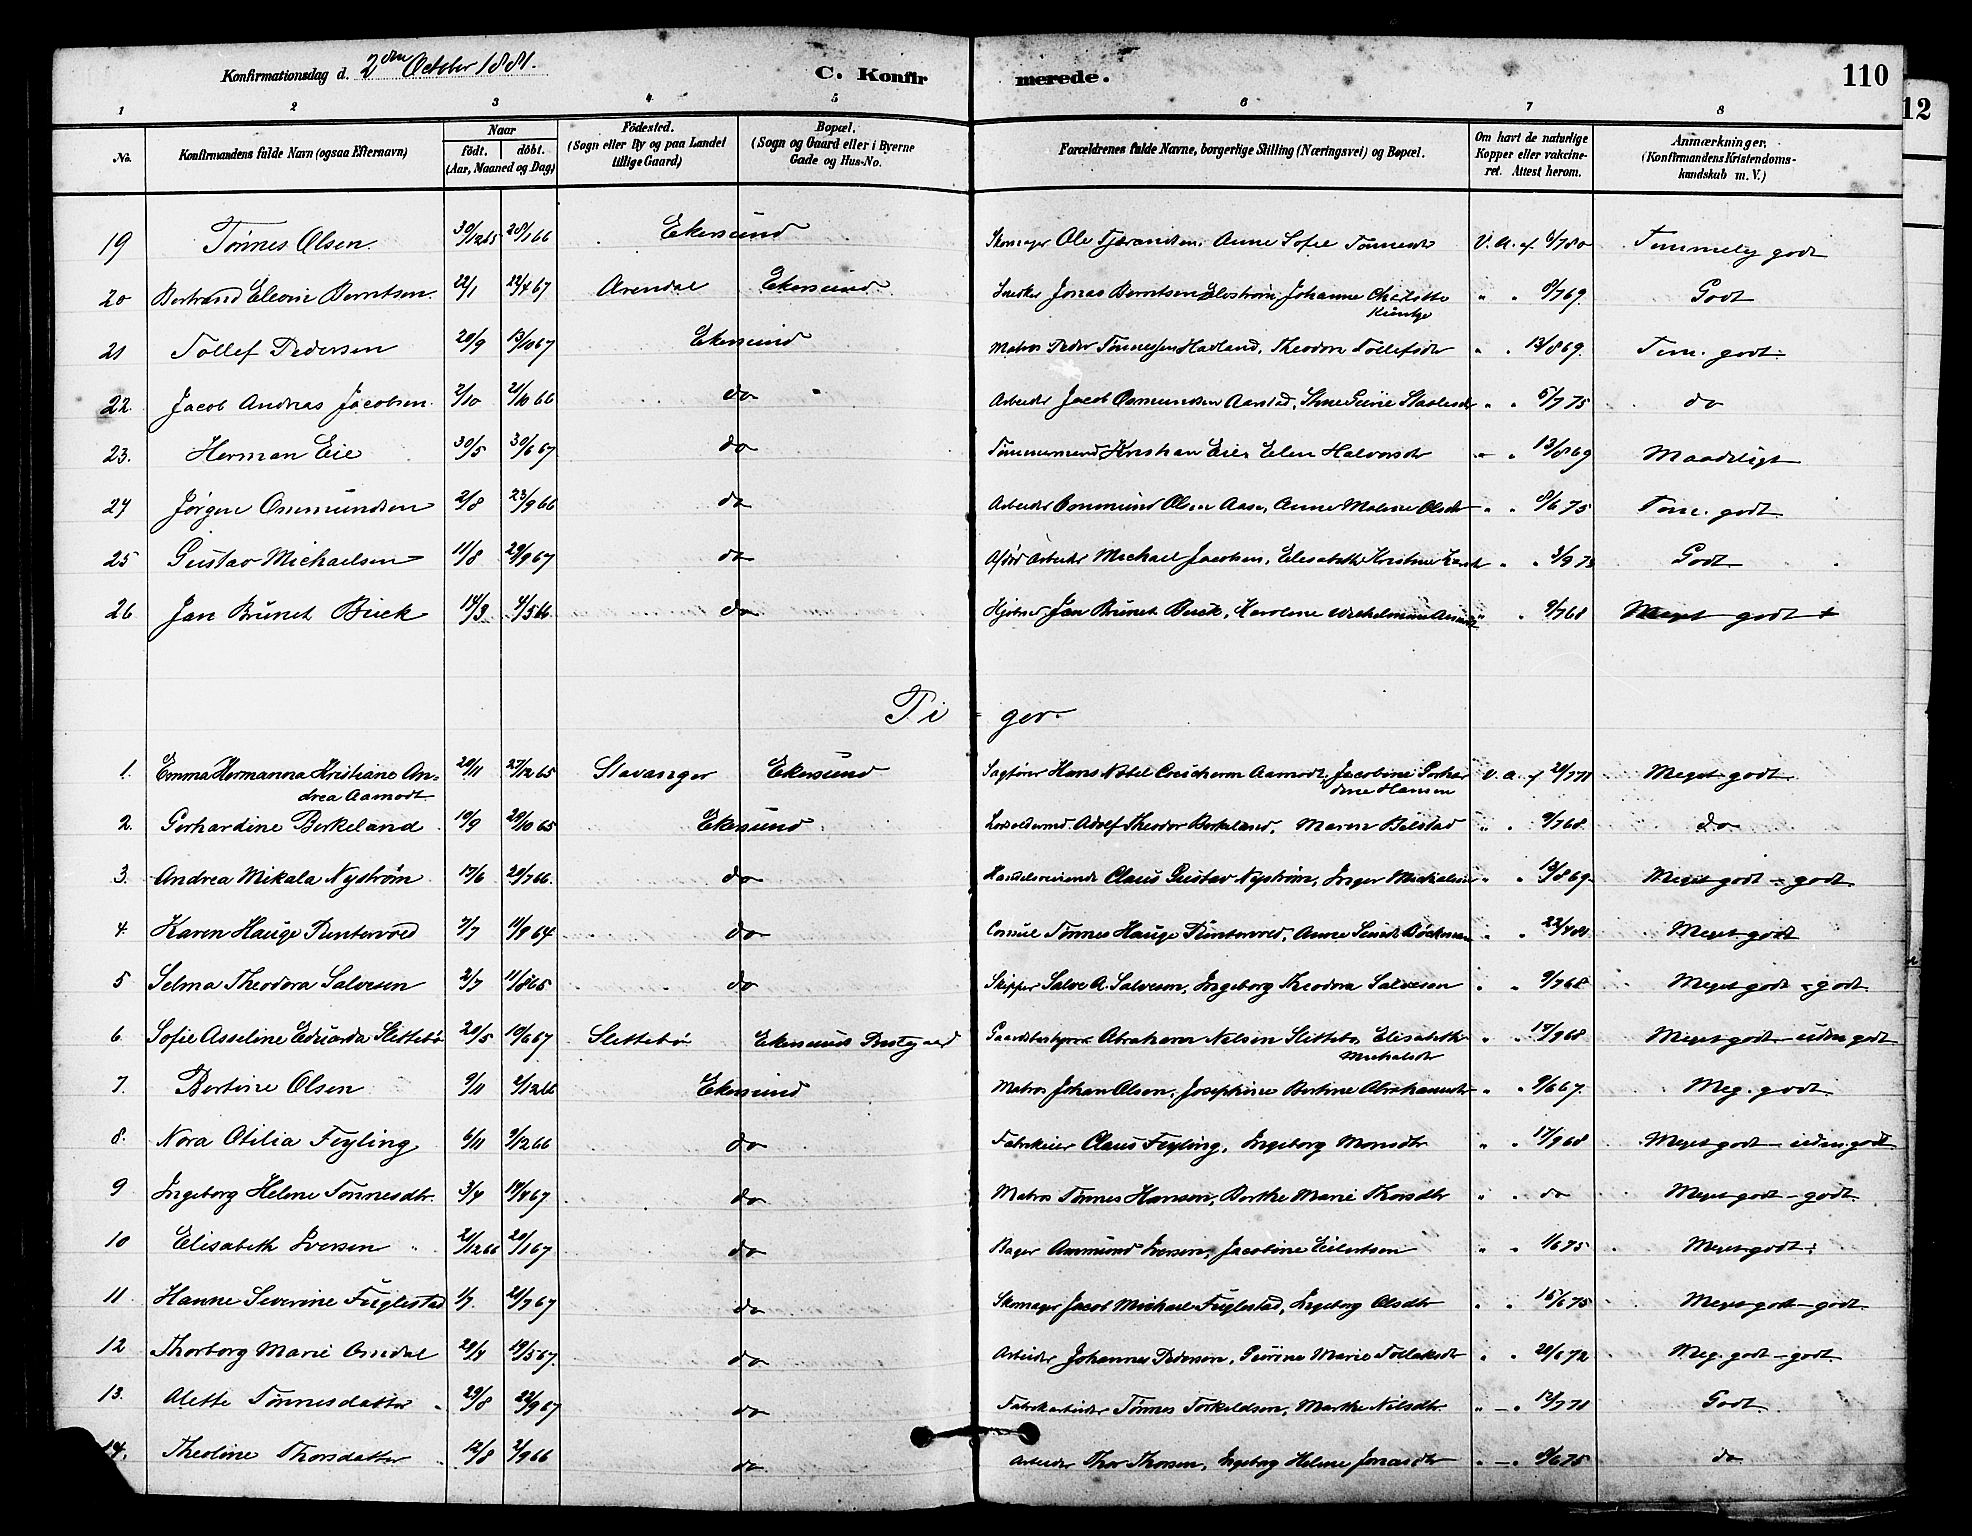 Konfirmationsdag d. 2den October 1881. C. Konfirmerede. 110
12
1 2 3 4 5 6 7 8
No. Konfirmandens fulde Navn (ogsaa Efternavn) Naar födt. döbt. (Aar, Maaned og Dag) Födested. (Sogn eller By og paa Landet tillige Gaard) Bopæl. (Sogn og Gaard eller i Byerne Gade og Hus-No. Forældrenes fulde Navne, borgerlige Stilling (Næringsvei) og Bopæl. Om havt de naturlige Kopper eller vakcineret. Attest herom. Anmærkninger. (Konfirmandens Kristendomskundskab m. V.)
19 Tönnes Olsen 30/12 65 28/1 66 Ekersund Skomager Ole Tjærandsen, Anne Sofie Tönnesdr V. A. af 6/7 80 Temmelig godt
20 Bertrand Eleom Berntsen 22/1 22/4 67 Arendal Ekersund Snedker Jonas Berntsen, Johanne Charlotte " " 8/7 69 Godt
21 Tollef Pedersen 20/9 13/10 67 Ekersund Matros Peder Tönnessen Havland, Theodora Tollefsdr " " 13/8 69. Tem. godt.
22. Jacob Andreas Jacobsen 2/10 21/10 66 do Arbeider Jacob Osmundsen Aarstad, " " 5/7 75 do
23. Herman Eie 30/5 30/6 67 do Tömmermand Kristian Eie, Elen Halvorsdr " " 13/8 69 Maadeligt
24 Jörgen Ommundsen 2/8 23/9 66 do Arbeider Ommund Olsen Aase, Anne Malene Olsdr " " 8/6 75 Tem. godt.
25 Gustav Michaelsen 11/8 29/9 67 do Arbeider Michael Jacobsen, Elisabeth Kristine " " 3/9 73 Godt
26 Jan Brunet Buck 14/3 4/5 66 do Jan Brunet Buck, Karoline Wilhelmine " " 9/7 68 Meget godt +
Pi ger.
1. Emma Hermanna Kristiane Andrea Aamodt 20/11 27/12 65 Stavanger Ekersund Sagförer Hans Nobel Aamodt, Jacobine Hansen V. A. af 21/7 71 Meget godt
2. Gerhardine Birkeland 19/9 29/10 65 Ekersund Adolf Theodor Birkeland, Maren Bilstad " " 9/7 68. do
3. Andrea Mikala Nyström 17/6 29/7 66. do Handelsreisende Claus Gustav Nyström, Inger " " 13/8 69 Meget godt - godt
4. Karen Hauge Puntervold 7/7 11/9 64 do Consul Tönnes Hauge Puntervold, Anne Böckman " " 22/4 81 Meget godt
5 Selma Theodora Salvesen 2/7 11/8 65 do Skipper Salve A. Salvesen, Ingeborg Theodora Salvesen " " 9/7 68 Meget godt - godt.
6. Sofie Asseline Eduarda Slettebö 20/5 10/6 67 Slettebö Ekersund Prestegaard Gaardsbestyrer Abraham Nilsen Slettebö, Elisabeth " " 17/9 68 Meget godt - uden godt
7. Bertine Olsen 9/11 2/12 66 Ekersund Matros Johan Olsen, Josephine Bertine Abrahamsdr " " 9/6 67. Meg. godt
8. Nora Otilia Feyling 6/11 9/12 66 do Claus Feyling, Ingeborg Monsdtr " " 17/9 68 Meget godt - uden godt
9 Ingeborg Helene Tönnesdtr. 3/4 19/4 67 do Matros Tönnes Hansen, Berthe Marie Thorsdtr " " do Meget godt - godt.
10 Elisabeth Iversen 21/12 66 20/1 67 do Bager Ommund Iversen, Jacobine Eilertsen " " 1/6 75 Meget godt
11 Hanne Severine Fuglestad 1/7. 21/7 67 do Skomager Jacob Michael Fuglestad, Ingeborg Olsdtr " " 16/6 75 Meget godt - godt.
12 Thorborg Marie Omdal 28/4 19/5 67. do Arbeider Johannes Pedersen, Marie Tollaksdtr " " 20/6 72 Meg. godt - godt.
13. Alette Tönnesdatter 29/8 22/9 67 do Fabrikarbeider Tönnes Torkeldsen, Marthe Nilsdtr. " " 12/7 71 Godt.
14. Theoline Thorsdatter 12/8 2/9 66 do Arbeider Thor Thorsen, Ingeborg Helene Jonasdtr " " 8/6 75 do